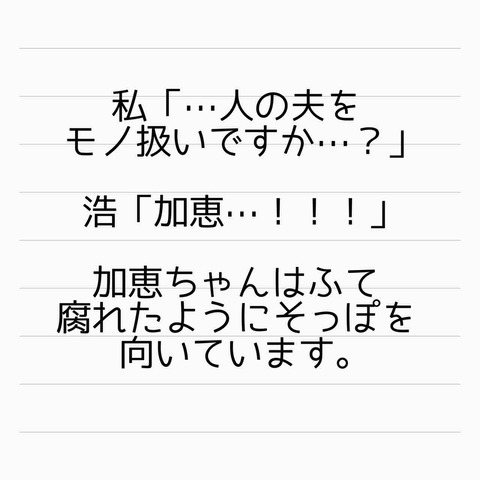 私「…人の夫を
モノ扱いですか…？」
浩「加恵…！！！」
加恵ちゃんはふて
腐れたようにそっぽを
向いています。